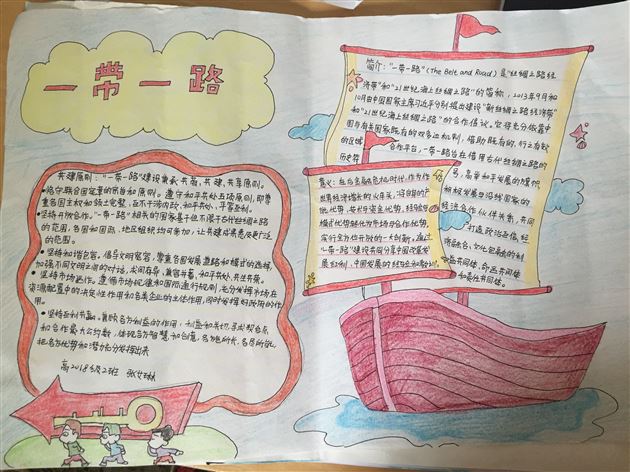 一带一路
共建原则："一带一路"建设秉承共商，共建，共享原则。
恪守联合国宪章的宗旨和原则。遵守和平共处五项原则，即尊
重各国主权和领土完整，互不干涉内政，和平共处，平等互利。
坚持开放合作。"一带一路"相关的国家基于但不限于古代丝绸之路
的范围，各国和国际，地区组织均可参加，让共建成果惠及更广泛
的范围。
坚持和谐包容。倡导文明宽容，尊重各国发展道路和模式的选择，
加强不同文明之间的对话，求同存异，兼容并蓄，和平共处，共生共荣。
坚持市场运作。遵循市场规律和国际通行规则，充分发挥市场在
资源配置中的决定性作用和各类企业的主体作用，同时发挥好政府的作
用。
坚持互利共赢。兼顾各方利益
和合作最大公约数，体现各方智慧和创意，各施所长，各尽所能，
把各方优势和潜力充分发挥出来
高2018级2班
简介："一带一路"(The Belt and Road)是"丝绸之路经
济带"和"21世纪海上丝绸之路"的简称，2013年9月和
10月由中国国家主席习近平分别提出建设"新丝绸之路经济带"
和"21世纪海上丝绸之路"的合作倡议。它将充分依靠中
国与有关国家既有的双多边机制，借助既有的，行之有效
的区域合作平台，"一带一路"旨在借用古代丝绸之路的
历史符号，高举和平发展的旗帜，
积极发展与沿线国家的
经济合作伙伴关系，共同
打造政治互信，经
济融合，文化包容的利
益共同体，命运共同体
和责任共同体。
意义：在后金融危机时代，作为
世界经济增长的火车头，将自身的产
能优势，技术与资金优势，经验与
模式优势转化为市场与合作优势，
实行全方位开放的一大创新。通过
"一带一路"建设共同分享中国改革发
展红利，中国发展的经验和教训。